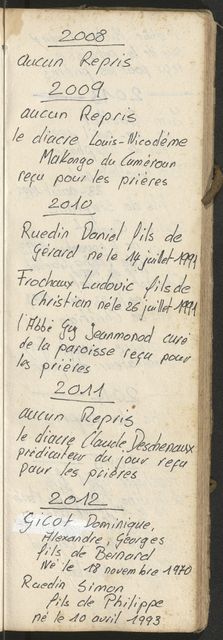 2008
aucun Repris
2009
aucun Repris
le diacre Louis-Nicodème
Makongo du Cameroun
reçu pour les prières
2010
Ruedin Daniel fils de
Gérard né le 14 juillet 1991
Frochaux Ludovic fils de
Christian né le 26 juillet 1991
l'Abbé Guy Jeanmonod curé
de la paroisse reçu pour
les prières
2011
aucun Repris
le diacre Claude Deschenaux
prédicateur du jour reçu
pour les prières
2012
Gicot Dominique,
Alexandre, Georges
fils de Bernard
Né le 18 novembre 1970
Ruedin Simon
fils de Philippe
né le 10 avril 1993